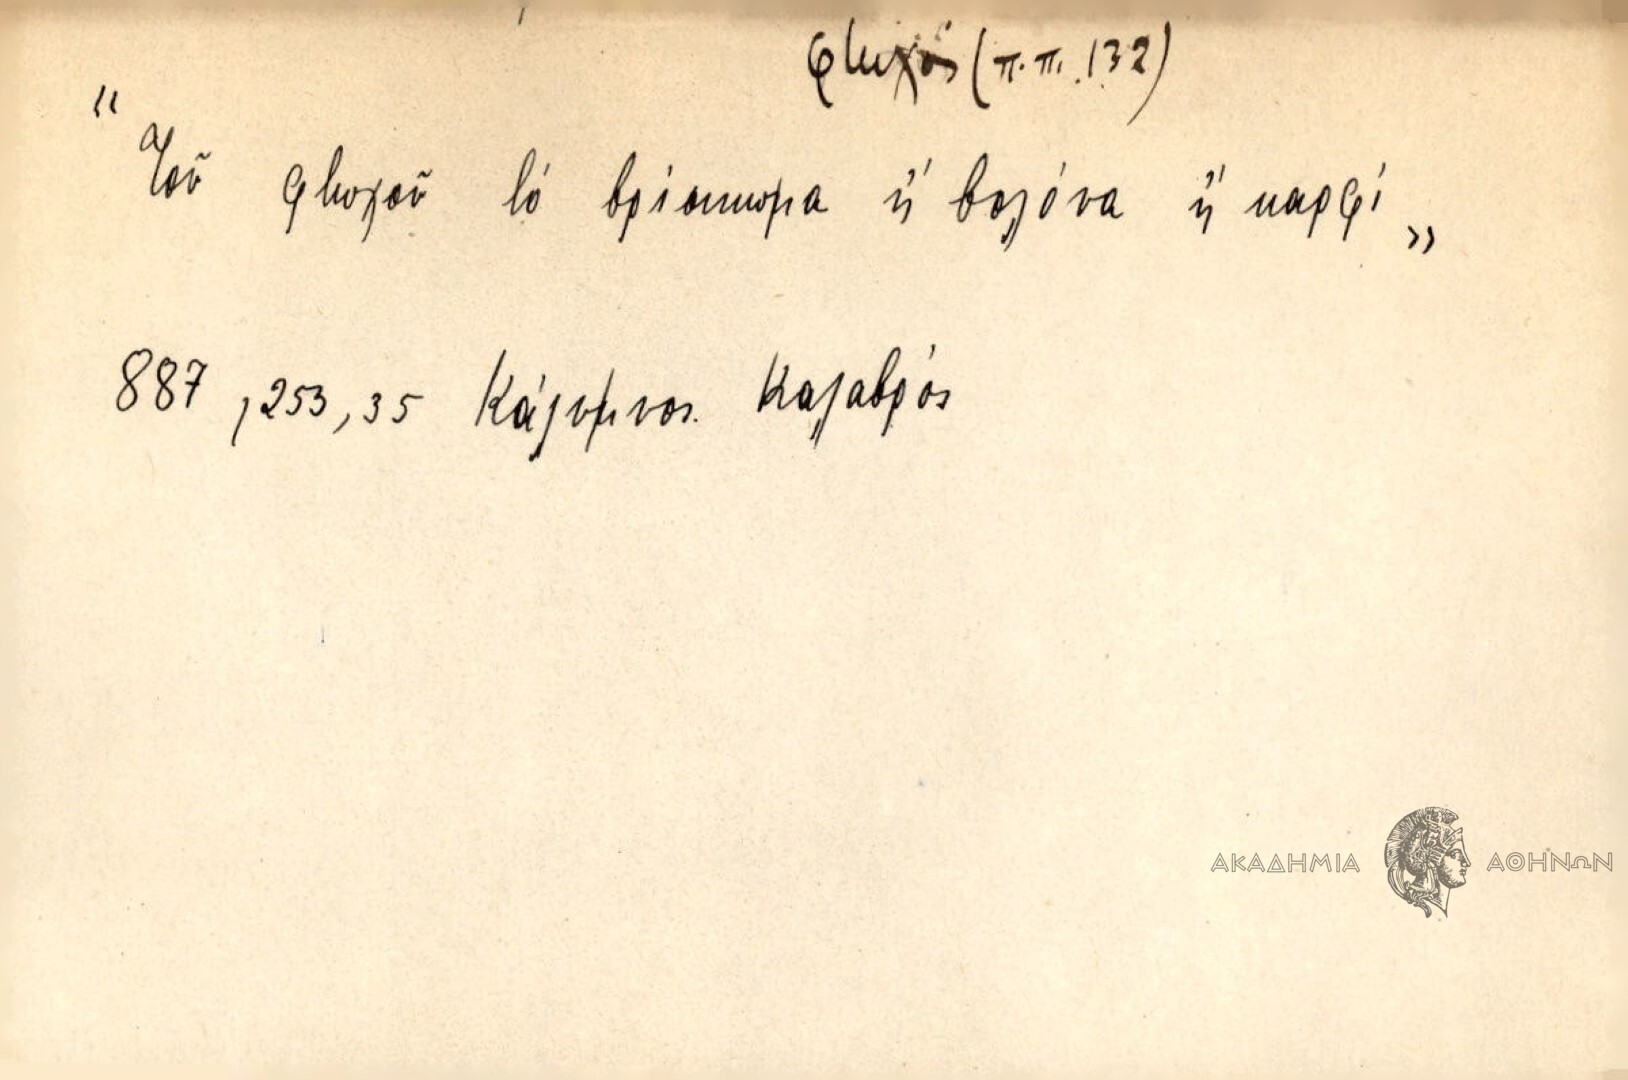 φτωχός (π.π. 132)
"Τοῦ φτωχοῦ τό βρίσκωμα ἤ βελόνα ἤ καρφί"
887, 253, 35 Κάλυμνος. Καλαβρός
ΑΚΑΔΗΜΙΑ ΑΘΗΝΩΝ